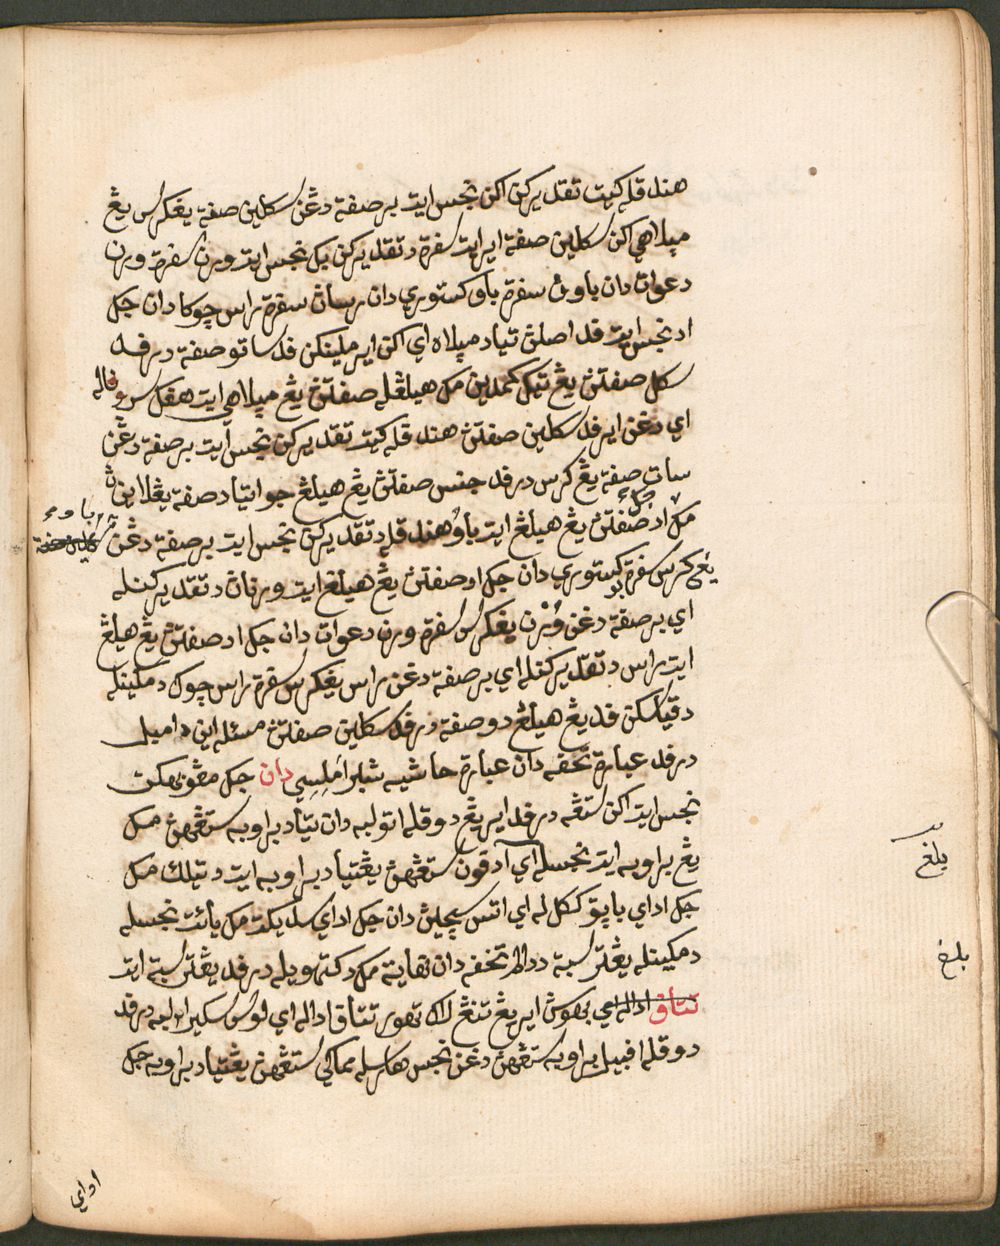 هندقله كيت تقديركن اكن نجس ايت برصفة دڠن سكلين صفة يڠكرس يڠ
مپلاهي اكن سكلين صفة اير ايت سفرة دتقديركن بل نجس ايت ورن سفرة ورن
دعوات دان باون سفرة باو كستوري دان رسان سفرة راس چوكا دان جك
اد نجس ايت فد اصلڽ تياد مپلاه اي اكن اير ملينكن فد ساتو صفة درفد
سكل صفتڽ يڠ تيڬ كمدين مك هيلڠله صفتڽ يڠ مپلاهي ايت هندقله
اي دڠن اير فد سكلين صفتڽ هندقله كيت تقديركن نجس ايت برصفة دڠن
سات صفة يڠ كرس درفد جنس صفتڽ يڠ هيلڠ جوا تياد صفة يڠ لاين
مك جك اد صفتڽ يڠ هيلڠ ايت باو هندقله دتقديركن نجس ايت برصفة دڠن
باو
يڠ كرس سفرة بو كستوري دان جك اد صفتڽ يڠ هيلڠ ايت ورنان دتقديركنله
اي برصفة دڠن ورن يڠكرس سفرة ورن دعوات دان جك اد صفتڽ يڠ هيلڠ
ايت راس دتقديركنله اي برصفة دڠن راس يڠكرس سفرة راس چوك دمكينله
دقياسكن فد يڠ هيلڠ دوصفة درفد سكلين صفتڽ مسئله اين دامبيل
درفد عبارة تحفه دان عبارة حاشيه شبراملسي دان جك مڠوبهكن
نجس ايت اكن ستڠه درفد اير يڠ دوقله اتو لبه دان تياد براوبه ستڠهڽ مك
يڠ براوبه ايت نجسله اي ادفون ستڠهڽ يڠتياد براوبه ايت دتيلك مك
جك اداي باپق ككلله اي اتس سچيڽ دان جك اداي سديكت مك يائت نجسله
دمكينله يڠترسبة ددالم تحفه دان نهاية مك دكتهويله درفد يڠترسبة ايت
تتاق اداله اي بهوسڽ اير يڠ تنڠ لاك تهور تتاق اداله اي لوس سكير٢ لبه درفد
دوقله افبيل براوبه ستڠهڽ دڠن نجس هارسله مماكي ستڠهڽ يڠتياد براوبه جك
يلڠ
بلڠ
اداي